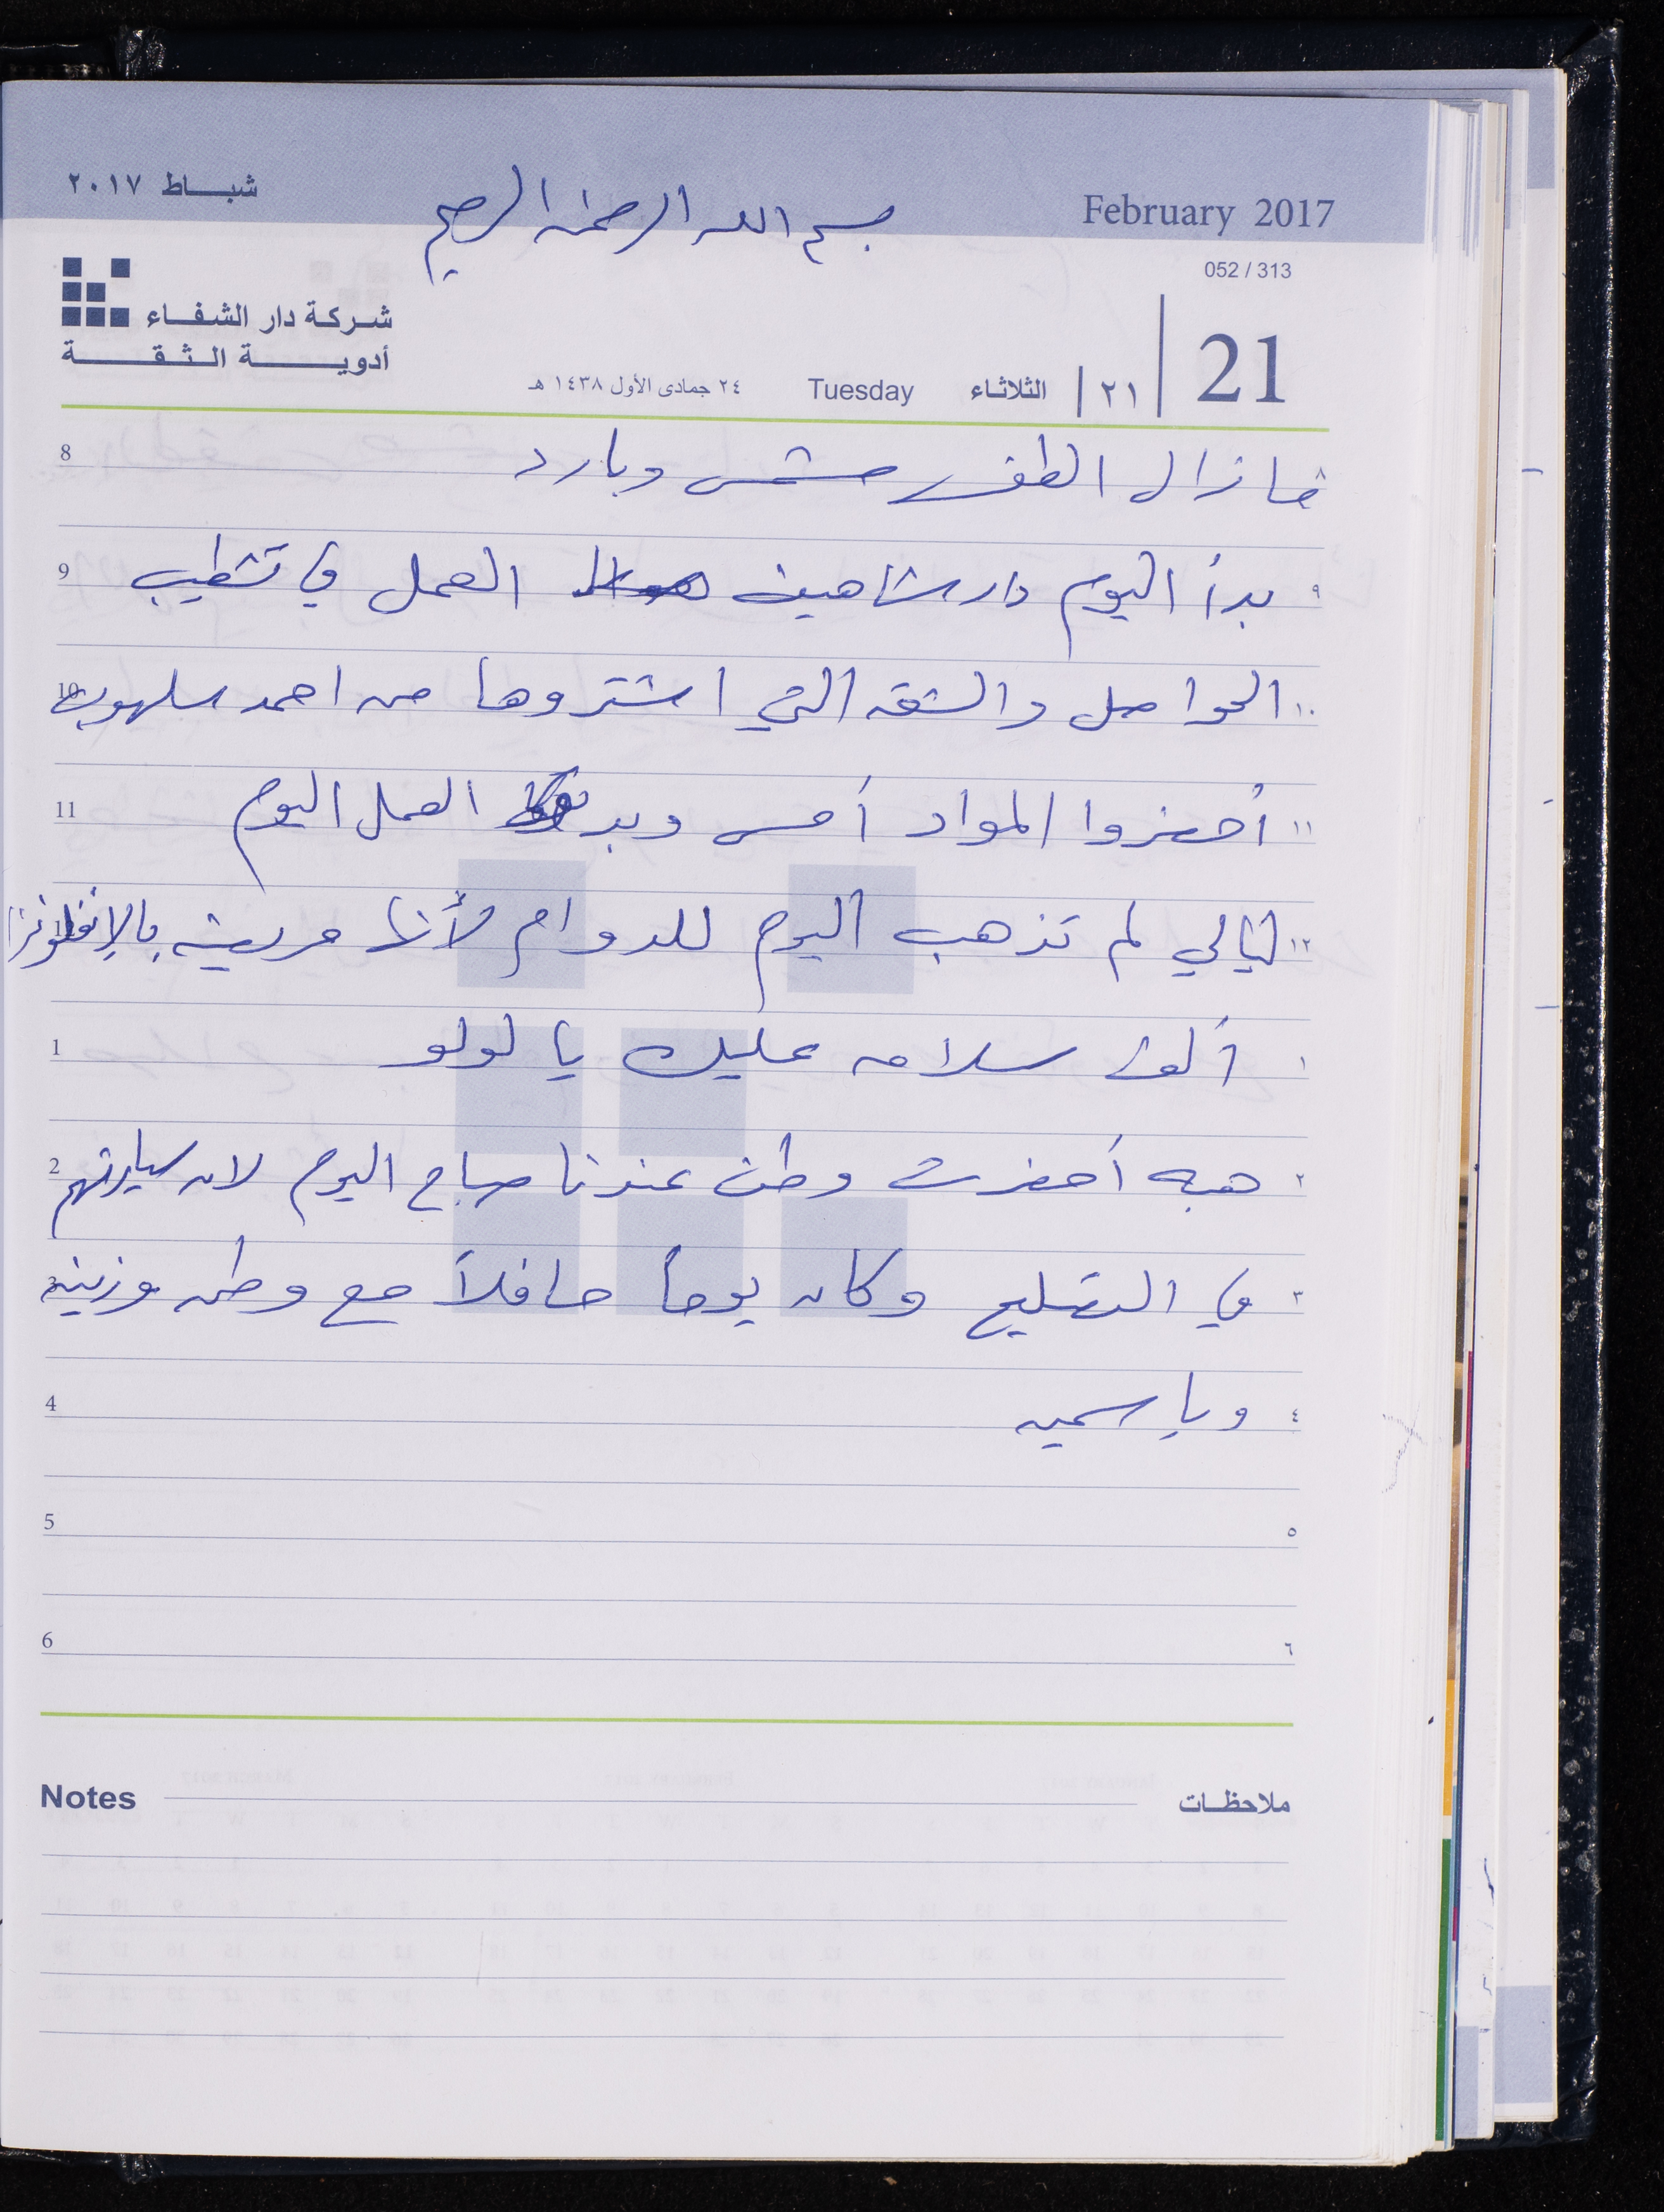 شباط ٢٠١٧
بسم الله الرحمن الرحيم
February 2017
052 / 313
شركة دار الشفاء
أدوية الثقة
21
٢١
الثلاثاء
Tuesday
٢٤ جمادى الأول ١٤٣٨ هـ
8 ما زال الطقس مشمس وبارد ٨
9 بدأ اليوم دار شاهين العمل في تشطيب ٩
10 الحواصل والشقه التي اشتروها من احمد سلهوب ١٠
11 أحضروا المواد أمس وبد العمل اليوم ١١
ليالي لم تذهب اليوم للدوام لأنها مريضه بالإنفلونزا ١٢
1 ألف سلامه عليك يا لولو ١
2 هبه أحضرت وطن عندنا صباح اليوم لان سيارتهم ٢
3 في التصليح وكان يوماً حافلاً مع وطن وزينه ٣
4 وياسمين ٤
5 ٥
6 ٦
Notes ملاحظات